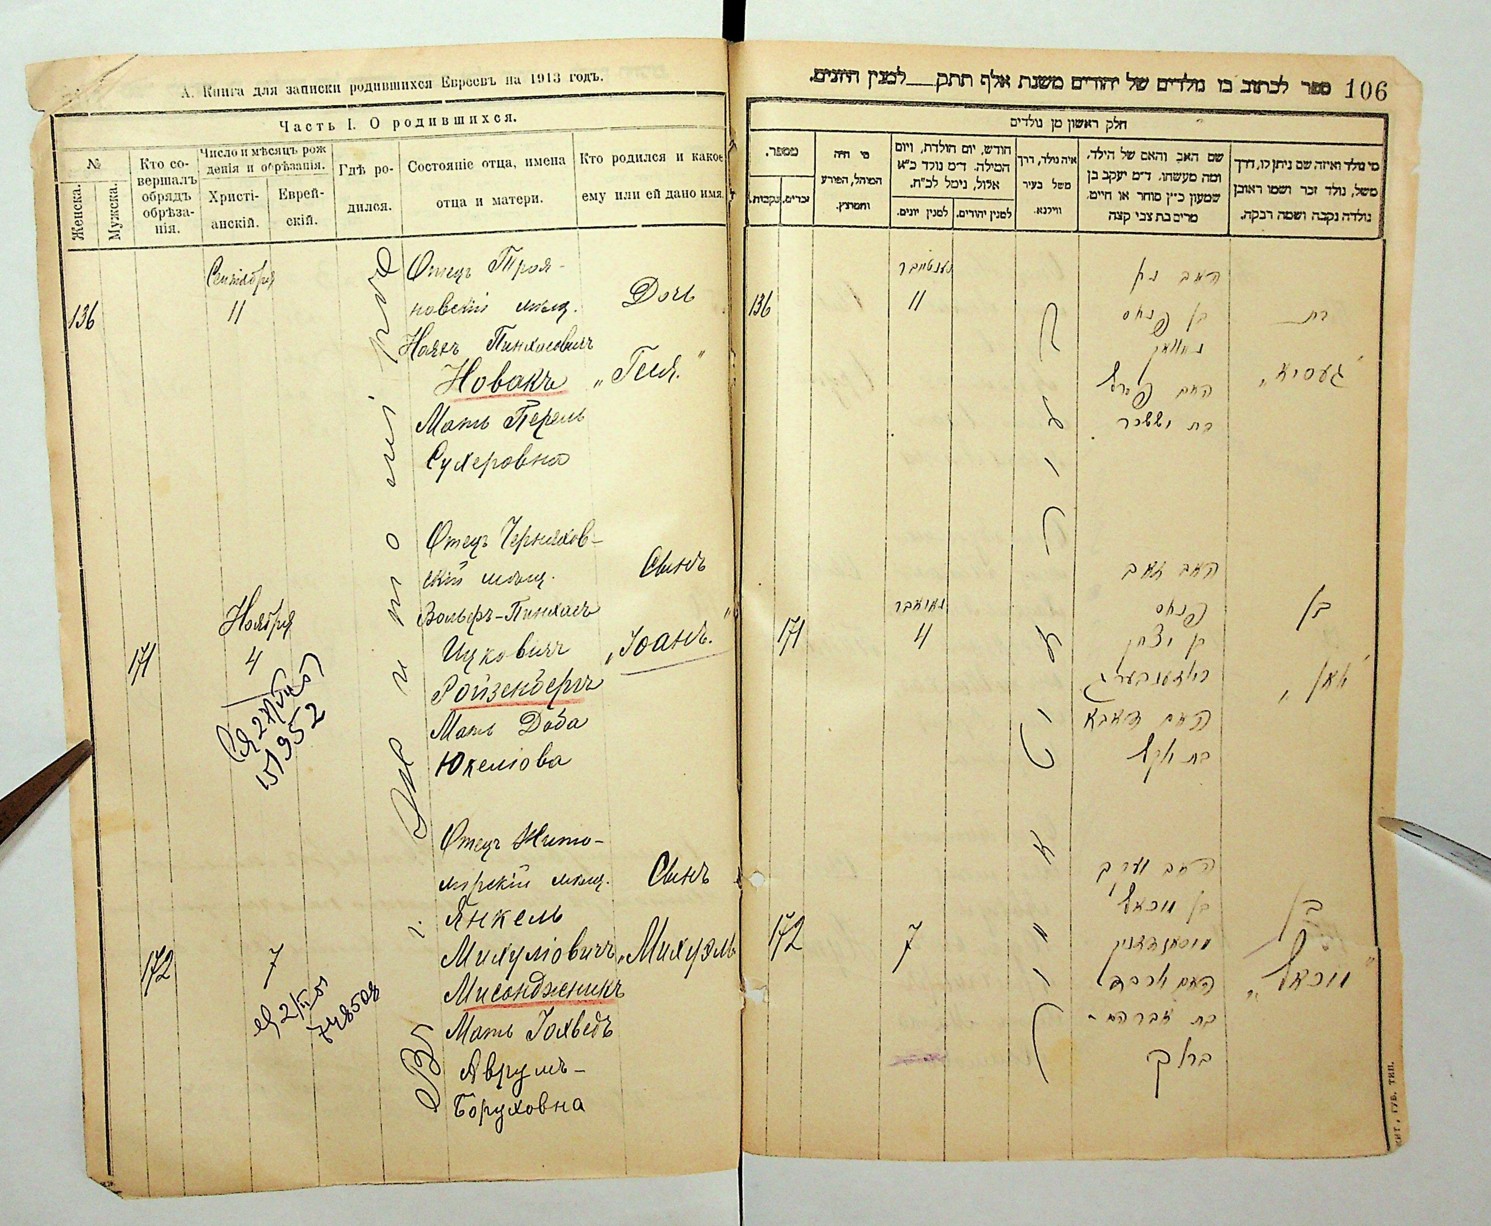 А. Книга для записки родившихся Евреевъ на 1913 годъ.
Часть I. О родившихся.
№
Женска.
Мужска.
Кто со-
вершалъ
обрядъ
обрѣза-
нія.
Число и мѣсяцъ рож
денія и обрѣзанія.
Христі-
анскій.
Еврей-
скій.
Гдѣ ро-
дился.
Состояніе отца, имена
отца и матери.
Кто родился и какое
ему или ей дано имя.
136
Сентября
11
Отецъ Троя-
новскій мѣщ.
Пинхасовичъ
Новакъ
Мать Перель
Сухеровна
Дочь
„Геся."
171
Ноября
4
51952
Отецъ Черняхов-
скій мѣщ.
Вольфъ-Пинхасъ
Ицковичъ
Ройзенбергъ
Мать Доба
Юкеліова
Сынъ
„Іоанъ."
172
7
748508
Отецъ Жито-
мірскій мѣщ.
Янкель
Михуліовичъ
Мисонджникъ
Мать Іохведъ
Аврумъ-
Боруховна
Сынъ
„Михуэль"
Въ г. Житомірѣ
ספר לכתוב בו נולדים של יהודים משנת אלף תתק__למנין היונים.
106
חלק ראשון מן נולדים
מספר.
נקבות.
זכרים.
מי היה
המוהל, הפורע
והמוצץ.
חודש, יום הולדת, ויום
המילה. ד״מ נולד כ״א
אלול, נימל לכ״ח.
למנין יונים.
למנין יהודים.
איה נולד, דרך
משל בעיר
ווילנא.
שם האב והאם של הילד,
ומה מעשהו. ד״מ יעקב בן
שמעון כ״ץ סוחר או חיים.
מרים בת צבי קצה
מי נולד ואיזה שם ניתן לו, דרך
משל, נולד זכר ושמו ראובן
נולדה נקבה ושמה רבקה.
136
סענטיאבר
11
האב נח
בן פנחס
נאוואק
האם פערל
בת יששכר
בת
„געסיא"
171
נאיאבר
4
האב זאב
פנחס
בן יצחק
רויזענבערג
האם דאבא
בת יוקל
בן
172
7
האב יעקב
בן מיכאל
האם יוכבד
בת אברהם-
ברוך
בן
„מיכאל"
זיטאמיר
ЖИТ. ГУБ. ТИП.